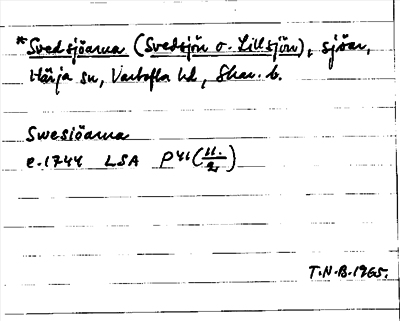 *Svedsjöarna (Svedsjön o. Lillsjön), sjöar,
Härja sn, Vartofta hd, Skar. b.
Swesiöarna
e.1744 LSA P41(11./2)
T.N-B.1965.